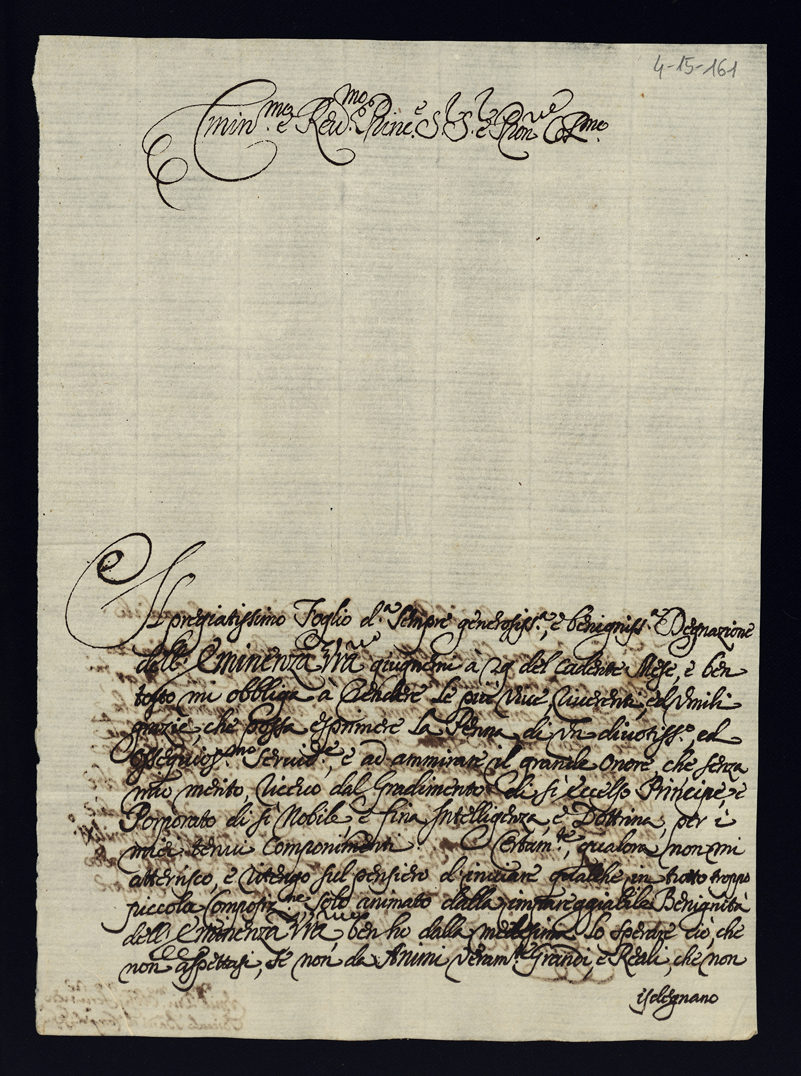 4-15-161
Emin.mo e Rev.mo Princ.e S.r S.r e Pron.e C.mo
Il pregiatissimo Foglio d.a sempre generosiss.a, e benigniss.a Degnazione
dell'Eminenza V.ra giugnemi à 29 del cadente Mese, e ben
tosto mi obbliga à rendere le più vive, riverenti, ed umili
grazie che possa esprimere la Penna di un divotiss.o, ed
ossequios.mo Servid.e, e ad ammirare il grande onore, che senza
mio merito, ricevo dal Gradimento di sì eccelso Principe, e
Porporato di sì Nobile e fina Intelligenza, e Dottrina, per i
miei tenui Componimenti. Certam.te, qualora non mi
atterrisco, e ritengo sul pensiero d'inviare qualche in tutto troppo
piccola Composiz.ne, e solo animato dalla impareggiabile Benignità
dell'Eminenza V.ra, ben ho dalla medesima lo sperare ciò, che
non aspettasi, se non da Animi veram.te Grandi, e Reali, che non
isdegnano